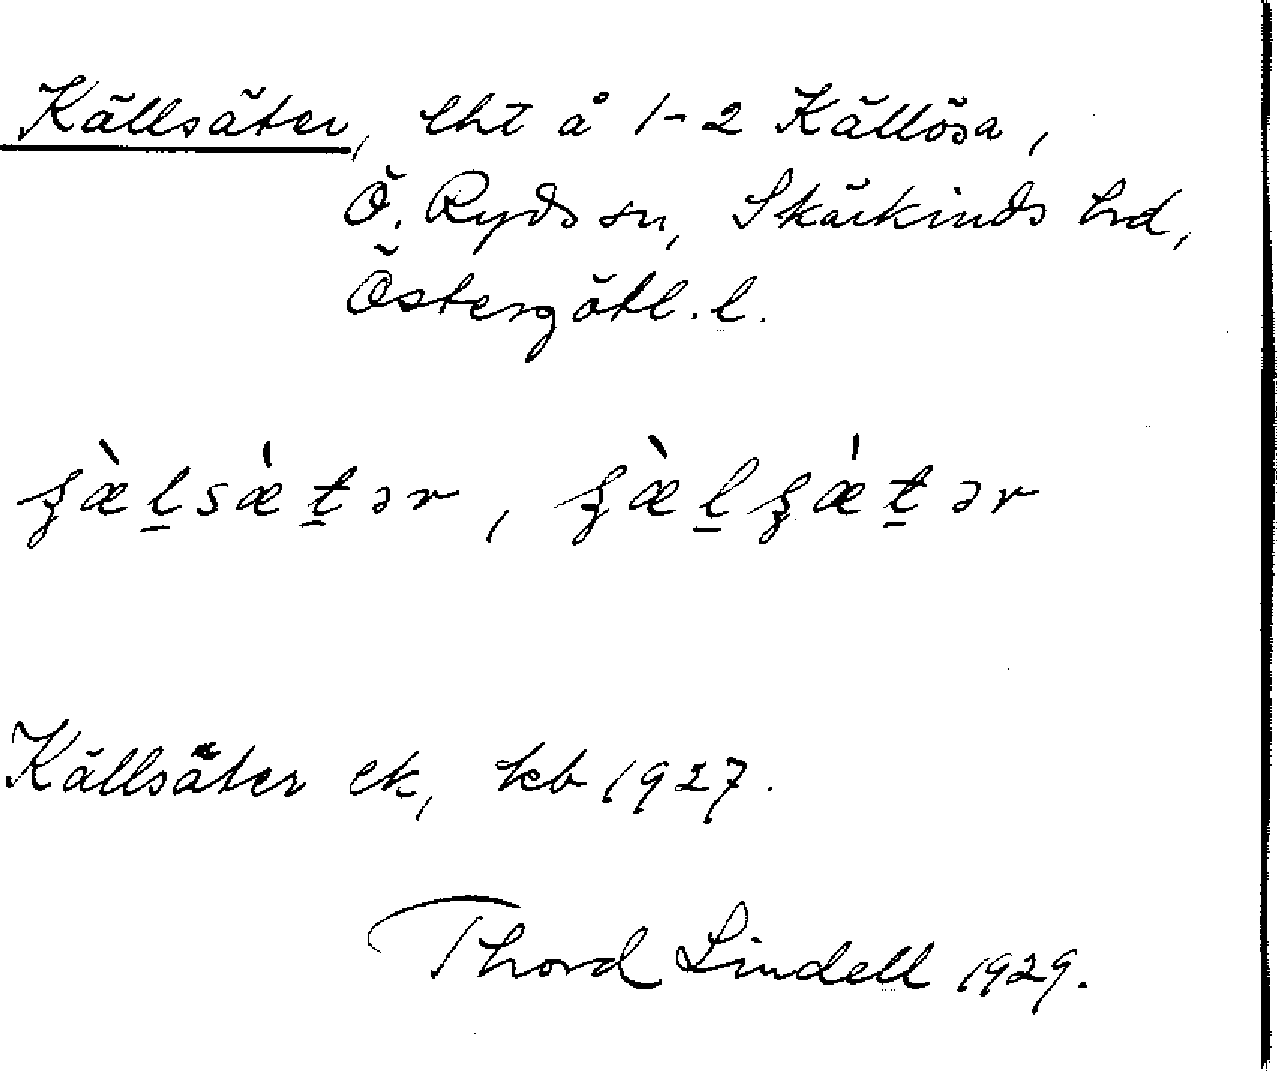 Källsäter, lht å 1-2 Källösa,
Ö. Ryds sn, Skärkinds hrd,
Östergötl. l.
Källsäter ek, kb 1927.
Thord Lindell 1929.